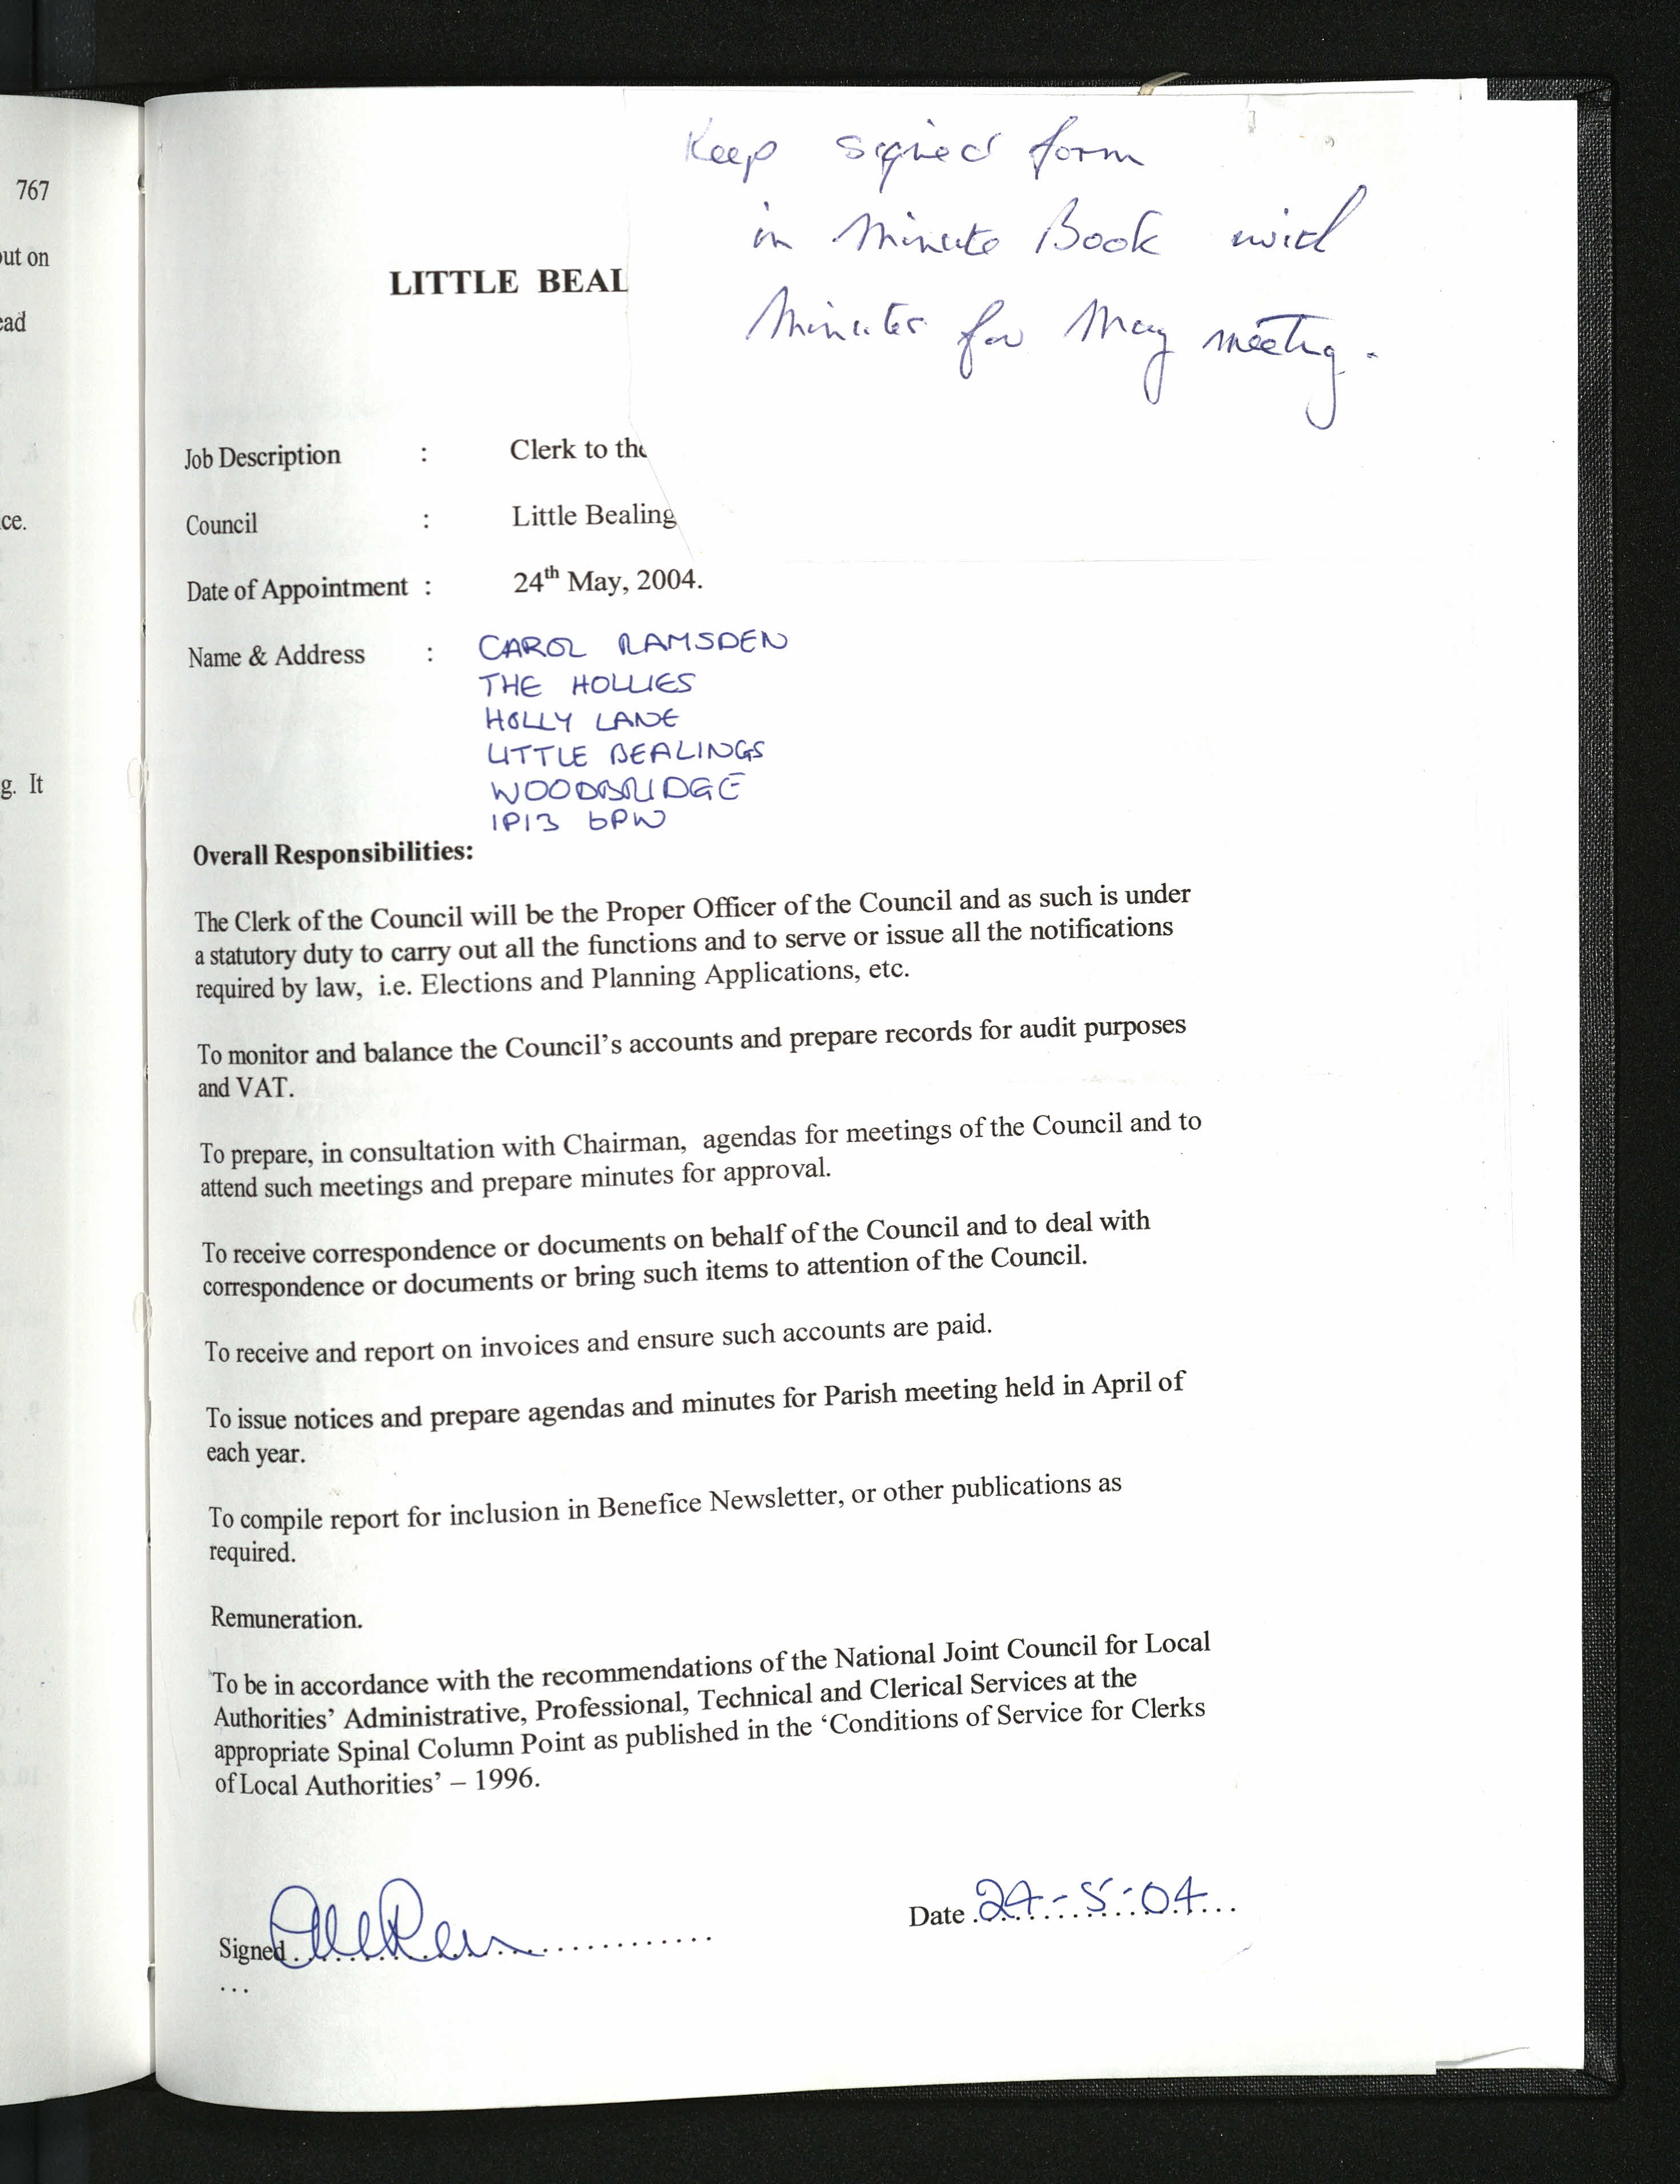 767
out on
ead
ce.
g. It
Keep signed form
in Minute Book with
Minutes for May meeting.
LITTLE BEAL
Job Description : Clerk to the
Council : Little Bealing
Date of Appointment : 24th May, 2004.
Name & Address : CAROL RAMSDEN
THE HOLLIES
HOLLY LANE
LITTLE BEALINGS
WOODBRIDGE
IP13 6PW
Overall Responsibilities:
The Clerk of the Council will be the Proper Officer of the Council and as such is under
a statutory duty to carry out all the functions and to serve or issue all the notifications
required by law, i.e. Elections and Planning Applications, etc.
To monitor and balance the Council's accounts and prepare records for audit purposes
and VAT.
To prepare, in consultation with Chairman, agendas for meetings of the Council and to
attend such meetings and prepare minutes for approval.
To receive correspondence or documents on behalf of the Council and to deal with
correspondence or documents or bring such items to attention of the Council.
To receive and report on invoices and ensure such accounts are paid.
To issue notices and prepare agendas and minutes for Parish meeting held in April of
each year.
To compile report for inclusion in Benefice Newsletter, or other publications as
required.
Remuneration.
To be in accordance with the recommendations of the National Joint Council for Local
Authorities' Administrative, Professional, Technical and Clerical Services at the
appropriate Spinal Column Point as published in the 'Conditions of Service for Clerks
of Local Authorities' – 1996.
Signed.................................
Date 24-5-04
...